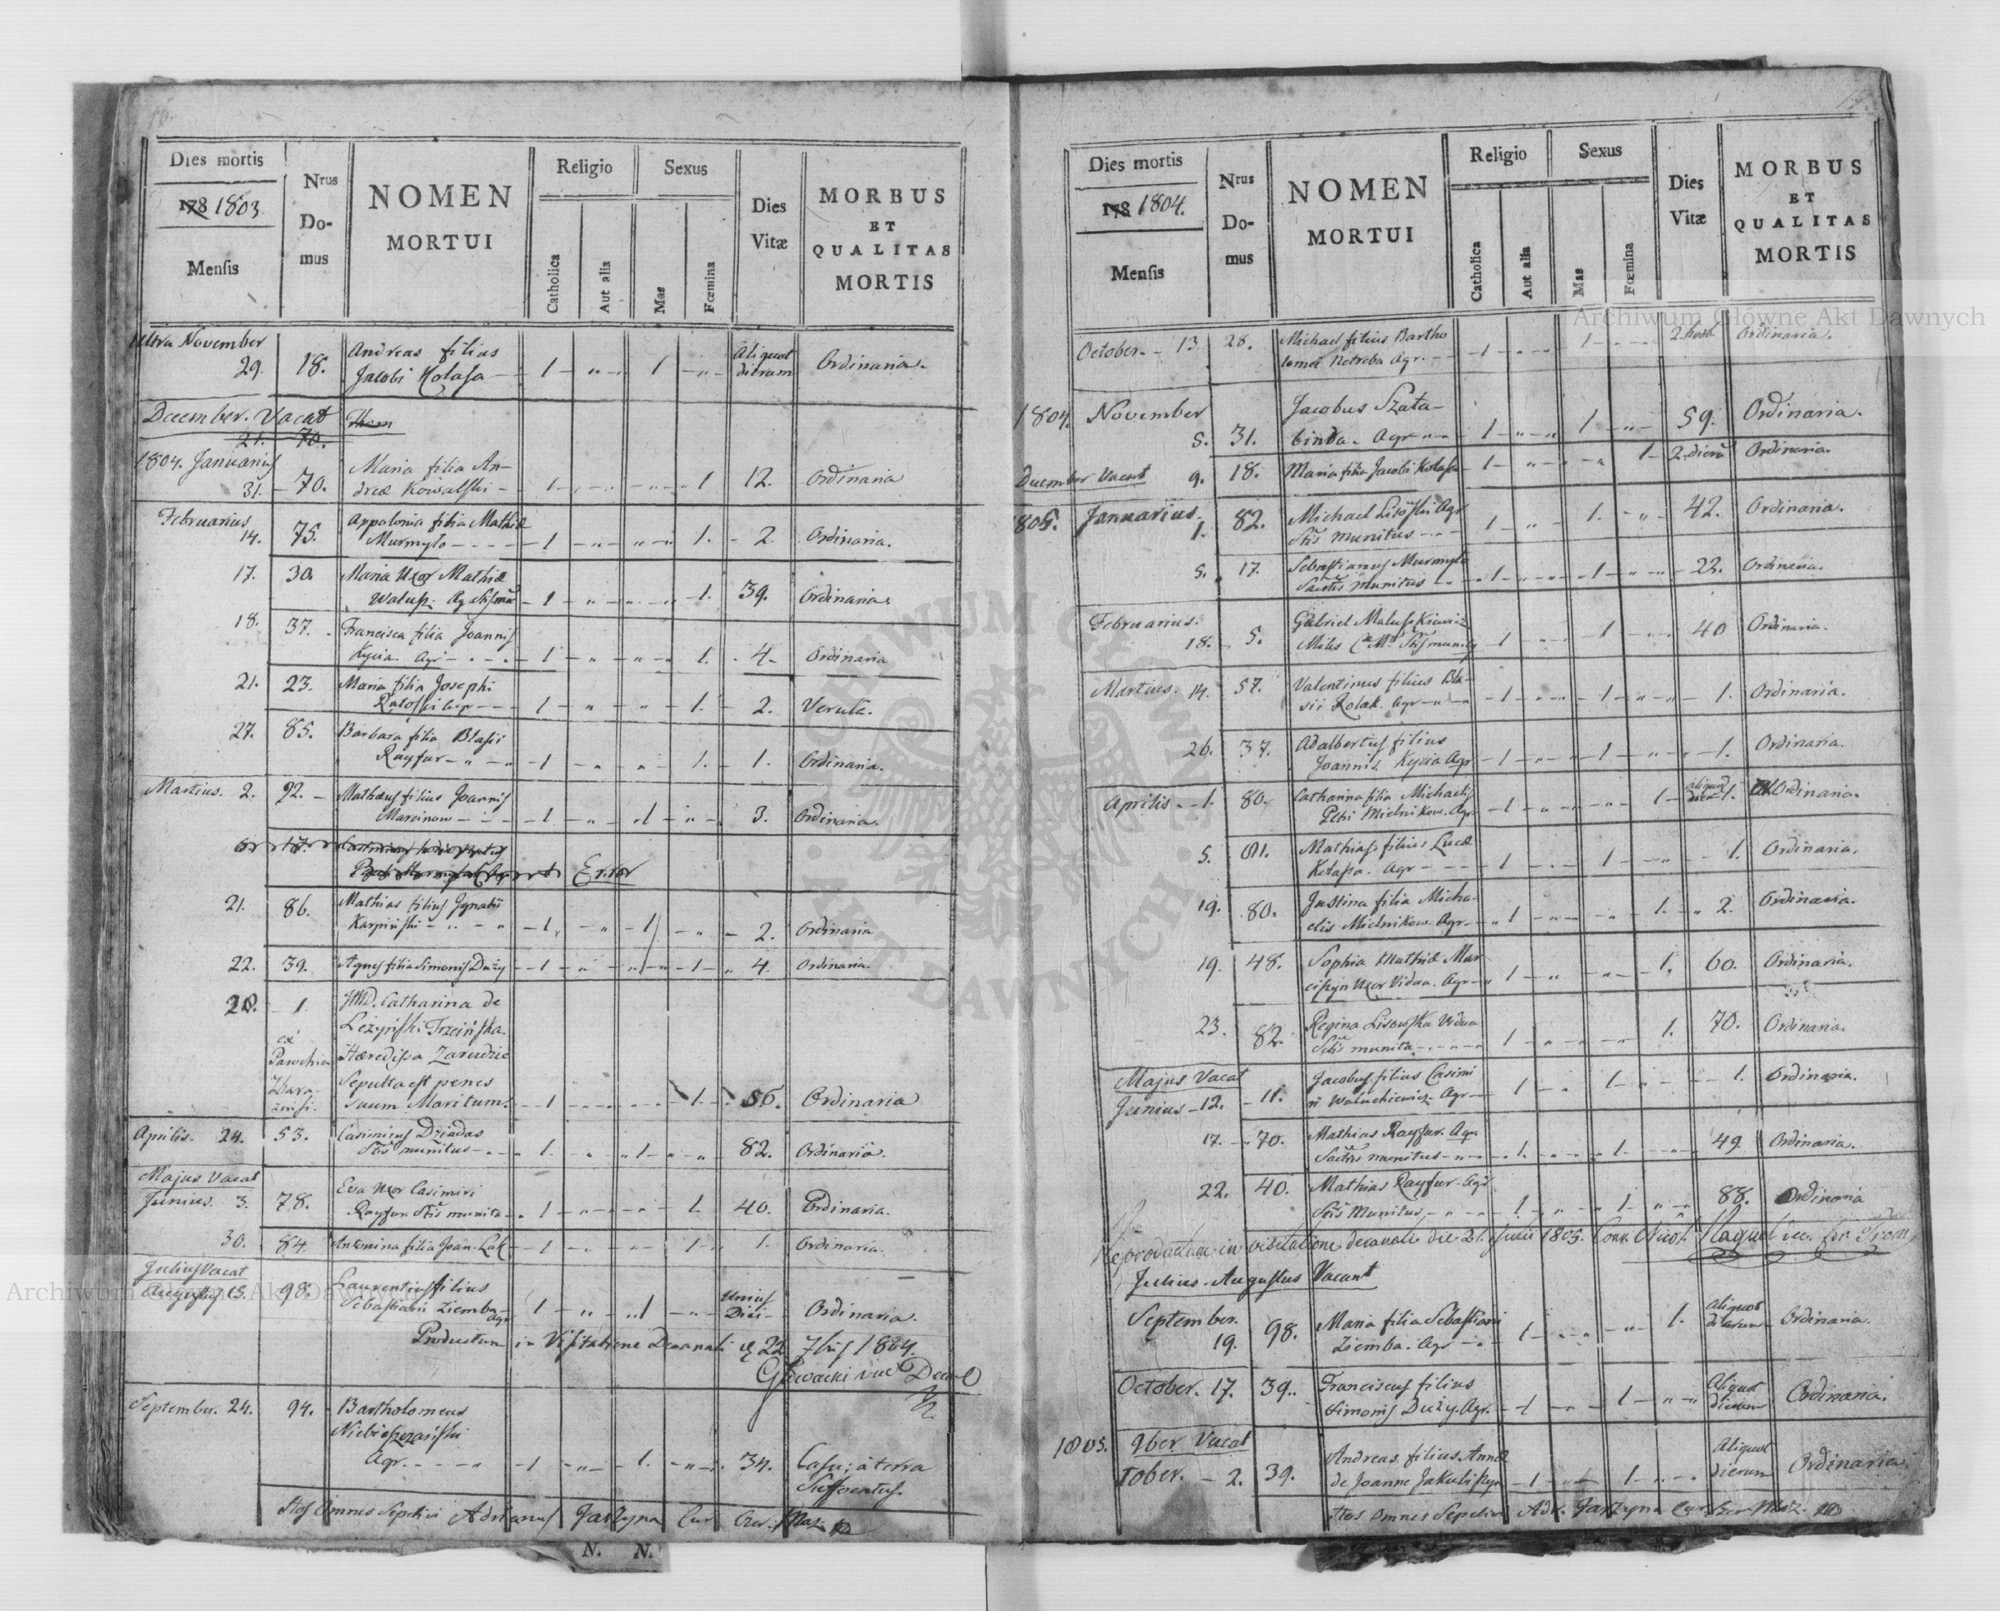 Dies mortis
178 1803.
Mensis
Nrus
Do-
mus
NOMEN
MORTUI
Religio
Catholica
Aut alia
Sexus
Mas
Fœmina
Dies
Vitæ
MORBUS
ET
QUALITAS
MORTIS
Ultra November
29. 18. Andreas filius
Jacobi Kolasa 1 1 Aliquot dierum Ordinaria.
December. Vacat
21. 70.
1804. Januarius
31. 70. Maria filia An-
dreæ Kowalski 1 1 12. Ordinaria
Februarius
14. 75. Appolonia filia Mathiæ
Murmyło 1 1. 2. Ordinaria.
17. 30. Maria Uxor Mathiæ
1 1. 39. Ordinaria.
18. 37. Francisca filia Joannis
Kycia. Agr 1 1. 4. Ordinaria
21. 23. Maria filia Josephi
1 1. 2.
27. 85. Barbara filia Blasii
Rayfur 1 1. 1. Ordinaria.
Martius. 2. 92. Mathæus filius Joannis
Marcinow 1 1 3. Ordinaria.
Error
21. 86. Mathias filius Ignatii
Karpiński 1. 1 2. Ordinaria
22. 39. Agnes filia Simonis Duży 1 1 4. Ordinaria.
28. 1 JMD. Catharina de
Leżyński Trzcińska
ex
Parochia Hæredissa Zarudzie
Sepulta est penes
suum Maritum. 1 1. 56. Ordinaria
Aprilis. 24. 53. Casimirus Dziadas
Sctis munitus 1. 1 82. Ordinaria.
Majus Vacat
Junius. 3. 78. Eva Uxor Casimiri
Rayfur. Sctis munita 1 1. 40. Ordinaria.
30. 84. Antonina filia Joan. Lak 1 1 1. Ordinaria.
Julius Vacat
Augustus 15. 98. Laurentius filius
Sebastiani Ziemba Agr 1 1 Unius Diei Ordinaria.
Productum in Visitatione Decanali d. 22 7bris 1804.
September. 24. 94. Bartholomeus
Agr. 1 1. 34. Casu; à terra
Suffocatus.
Hos Omnes Sepelivi Adrianus Jarzyna Cur
N. N.
Dies mortis
178 1804.
Mensis
Nrus
Do-
mus
NOMEN
MORTUI
Religio
Catholica
Aut alia
Sexus
Mas
Fœmina
Dies
Vitæ
MORBUS
ET
QUALITAS
MORTIS
October. 13 28. Michael filius Bartho
lomei Netreba Agr. 1 1 Ordinaria.
1804. November
5. 31. Jacobus Szata-
Agr 1 1 59. Ordinaria.
9. 18. Maria filia Jacobi Kolasa 1 1 2. dierū Ordinaria.
December Vacat
805. Januarius.
1. 82. Michael Lisowski Agr
Sctis munitus 1 1. 42. Ordinaria.
5. 17. Sebastianus Murmyło
Sactis munitus 1 1 22. Ordinaria.
Februarius.
18. 5. Gabriel
Miles 1 1 40 Ordinaria.
Martius. 14. 57. Valentinus filius Bla-
sii Rolak. Agr 1 1 1. Ordinaria.
26. 37. Adalbertus filius
Joannis Kycia Agr 1 1 1. Ordinaria.
Aprilis. 1. 80. Catharina filia Michaelis
Petri Mielnikow. Agr 1 1 Ordinaria.
5. 61. Mathias filius Lucæ
Kolasa. Agr 1 1 1. Ordinaria.
19. 80. Justina filia Micha-
elis Mielnikow. Agr 1 1. 2. Ordinaria.
19. 48. Sophia Mathiæ Mar-
Uxor Vidua. Agr 1 1. 60. Ordinaria.
23. 82. Regina Lisowska Vidua
Sctis munita 1 1. 70. Ordinaria.
Majus Vacat
Junius 12. 11. Jacobus filius Casimi
ri Waluchiewicz. Agr 1 1 1. Ordinaria.
17. 70. Mathias Rayfur. Agr.
Sactis munitus 1. 1 49. Ordinaria.
22. 40. Mathias Rayfur. Agr
Sctis Munitus 1. 1 88. Ordinaria
Reproductum in visitatione decanali die 21. Julii 1805.
Julius. Augustus Vacant
September.
19. 98. Maria filia Sebastiani
Ziemba. Agr 1 1. Aliquot dierum Ordinaria.
October. 17. 39. Franciscus filius
Simonis Duży. Agr. 1 1 Aliquot dierum Ordinaria.
1805. 9ber Vacat
Xober. 2. 39. Andreas filius Annæ
de Joanne 1 1 Aliquot dierum Ordinaria.
Hos omnes Sepelivi Adr. Jarzyna Cur
Archiwum Główne Akt Dawnych
Archiwum Główne Akt Dawnych
ARCHIWUM GŁÓWNE · AKT DAWNYCH ·